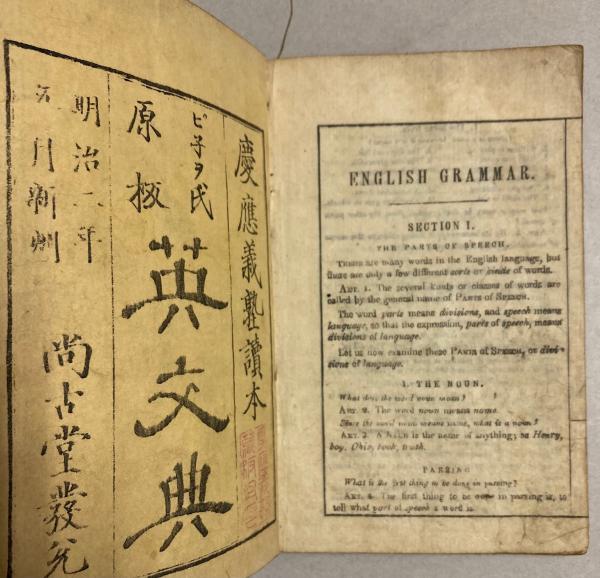 慶應義塾讀本
ピ子ヲ氏
原板
英文典
明治二年
五月新刻
尚古堂發兌
ENGLISH GRAMMAR.
SECTION I.
THE PARTS OF SPEECH.
THERE are many words in the English language, but
there are only a few different sorts or kinds of words.
ART. 1. The several kinds or classes of words are
called by the general name of PARTS OF SPEECH.
The word parts means divisions, and speech means
language, so that the expression, parts of speech, means
divisions of language.
Let us now examine these PARTS OF SPEECH, or divi-
sions of language.
1. THE NOUN.
What does the word noun mean?
ART. 2. The word noun means name.
Since the word noun means name, what is a noun?
ART. 3. A NOUN is the name of anything; as Henry,
boy, Ohio, book, truth.
PARSING
What is the first thing to be done in parsing?
ART. 4. The first thing to be done in parsing is, to
tell what part of speech a word is.